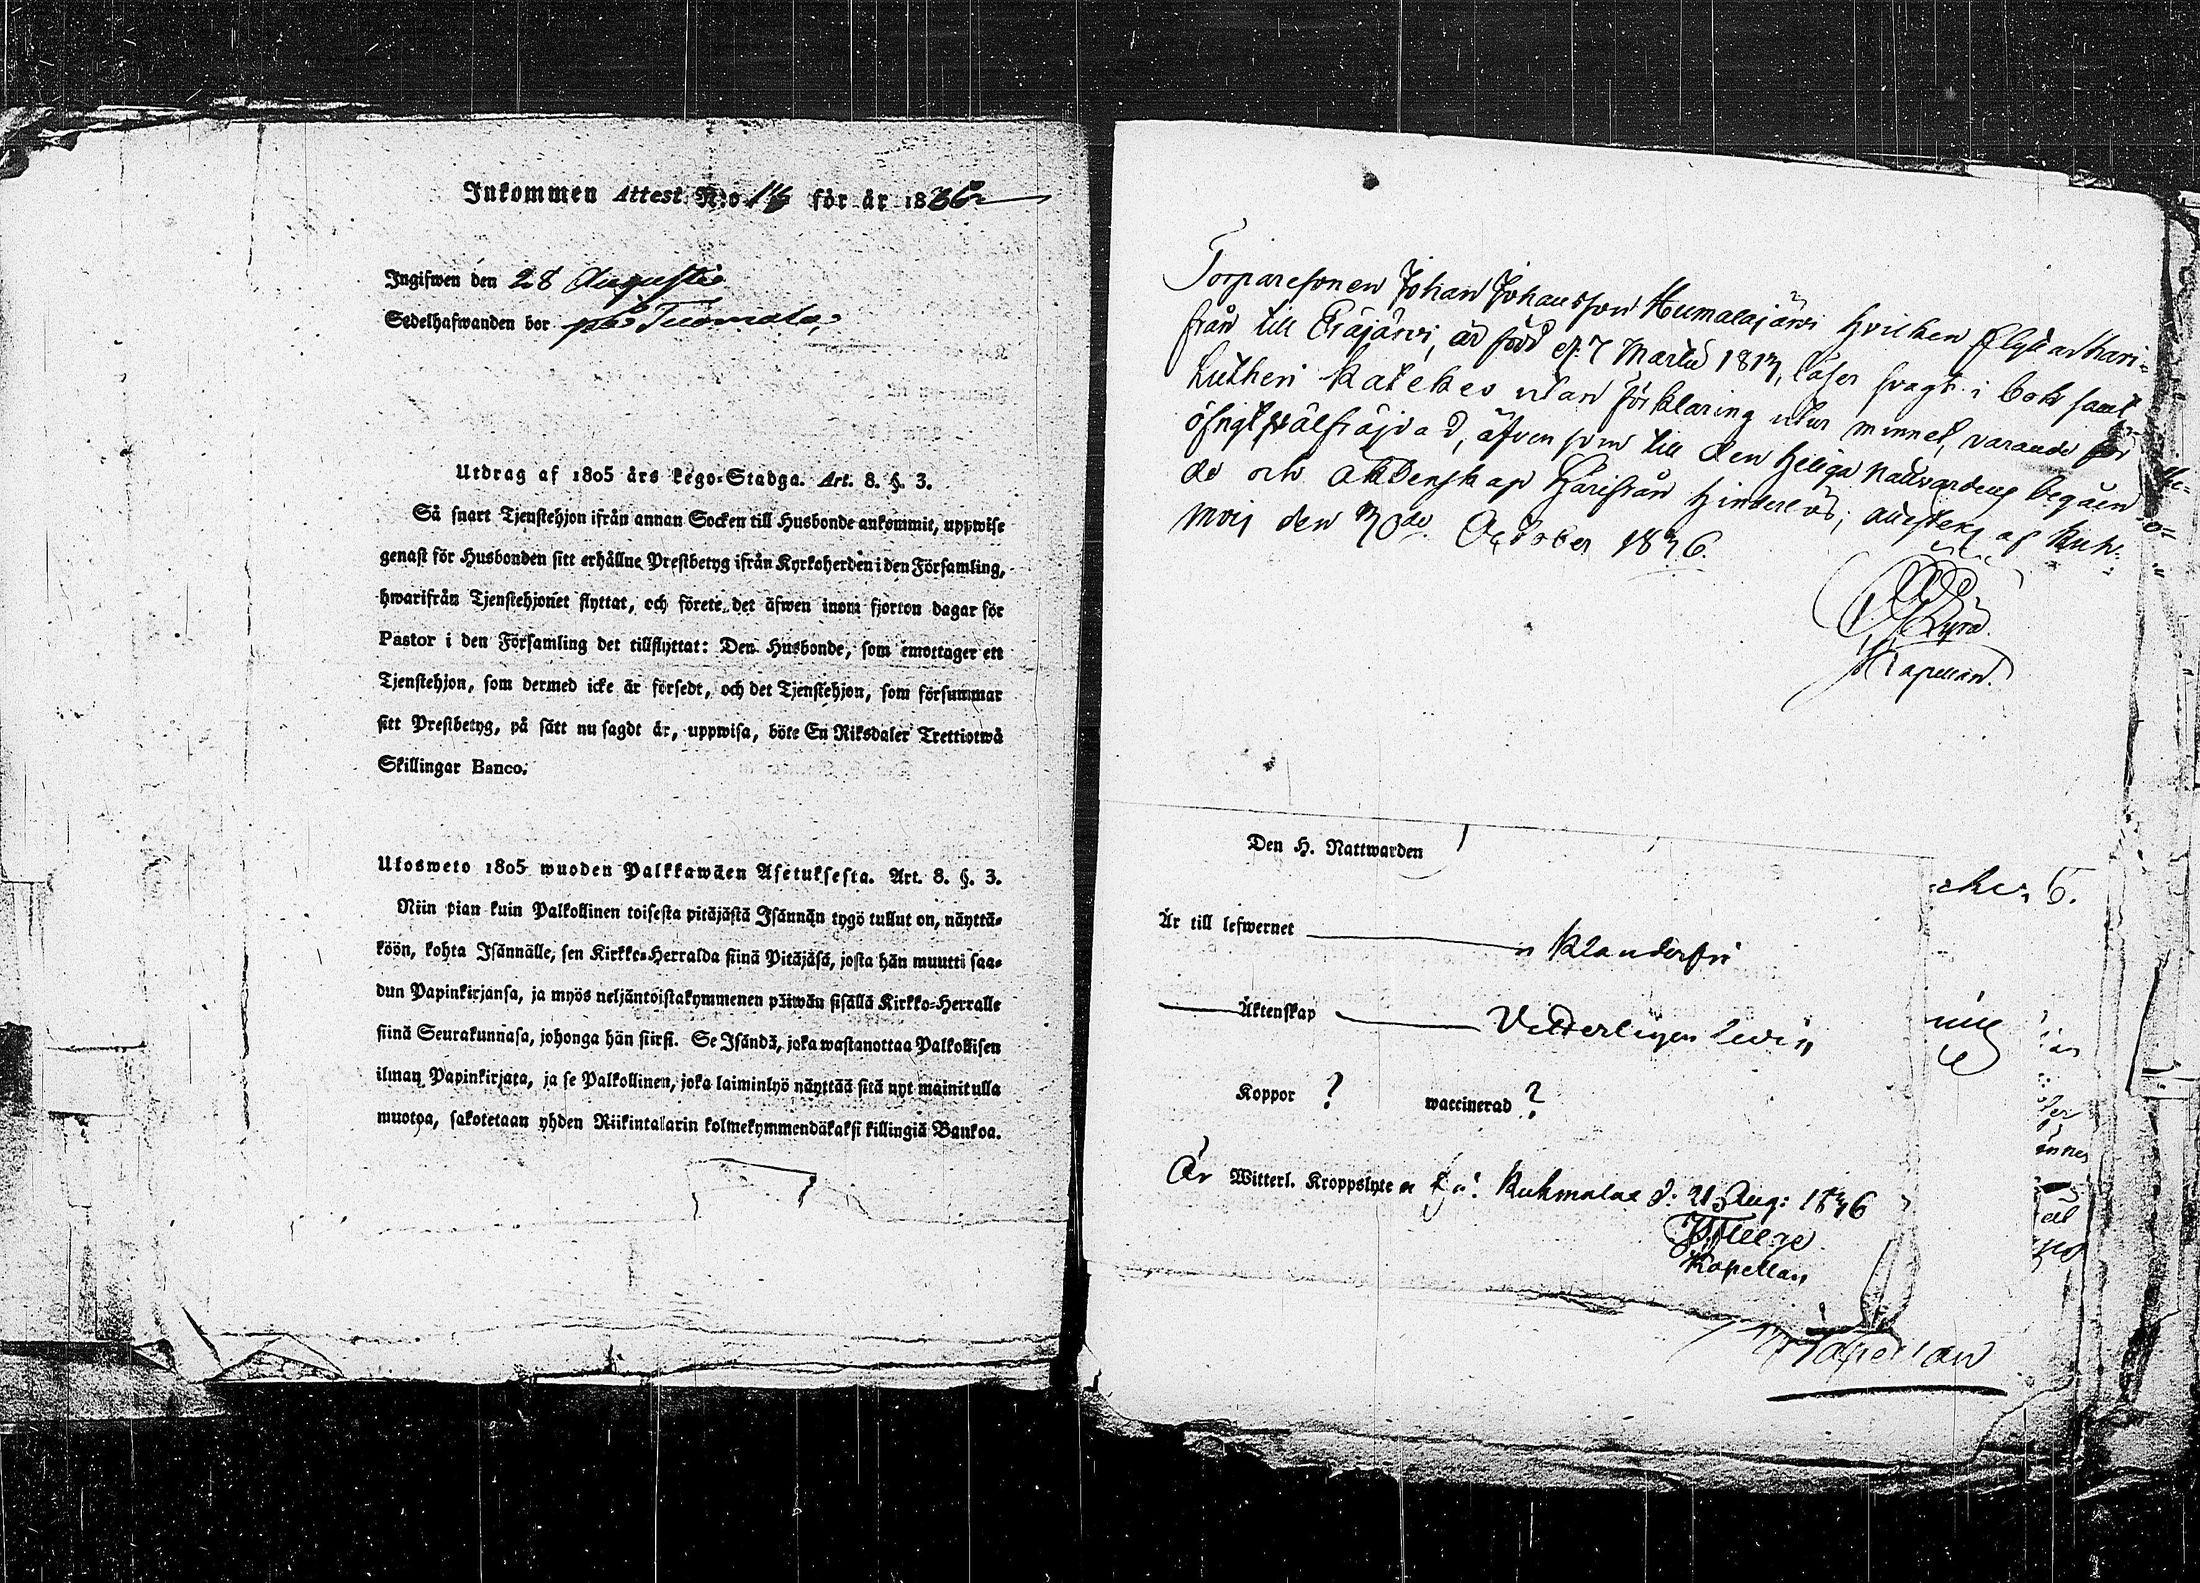 Inkommen Attest N:o 14 för år 1836
Ingifwen den 28 Augusti
Sedelhafwanden bor på Tuomola
Utdrag af 1805 års Lego-Stadga. Art. 8. §. 3.
Så snart Tjenstehjon ifrån annan Socken till Husbonde ankommit, uppwise
genast för Husbonden sitt erhållne Prestbetyg ifrån Kyrkoherden i den Församling,
hwarifrån Tjenstehjonet flyttat, och förete det äfwen inom fjorton dagar för
Pastor i den Församling det tillflyttat: Den Husbonde, som emottager ett
Tjenstehjon, som dermed icke är försedt, och det Tjenstehjon, som försummar
sitt Prestbetyg, på sätt nu sagdt är, uppwisa, böte En Riksdaler Trettiotwå
Skillingar Banco.
Ulosweto 1805 wuoden Palkkawäen Asetuksesta. Art. 8. §. 3.
Niin pian kuin Palkollinen toisesta pitäjästä Isännän tygö tullut on, näyttä-
köön, kohta Isännälle, sen Kirkko-Herralda siinä Pitäjäsä, josta hän muutti saa-
dun Papinkirjansa, ja myös neljäntoistakymmenen päiwän sisällä Kirkko-Herralle
siinä Seurakunnasa, johonga hän siirsi. Se Isändä, joka wastanottaa Palkollisen
ilman Papinkirjata, ja se Palkollinen, joka laiminlyö näyttää sitä nyt mainitulla
muotoa, sakotetaan yhden Riikintalarin kolmekymmendäkaksi killingiä Bankoa.
Torparesonen Johan Johansson Humalajärvi hvilken flyttar häri-
från till Eräjärvi, är född d. 7 Martii 1813, läser svagt i bok samt
Lutheri Katekes utan förklaring utur minnet, varande för
öfrigt välfräjdad, äfven som till den Heliga Nattvardens begåen-
de och äktenskap härifrån hinderlös; attesteras af Kuh-
mois den 30de October 1836.
Kapellan.
Den H. Nattwarden
Är till lefwernet klanderfri
Äktenskap Vetterligen ledig
Koppor ? waccinerad ?
Är Witterl. Kroppslyte fri. Kuhmalax d. 21 Aug: 1836
Kapellan
Kapellan